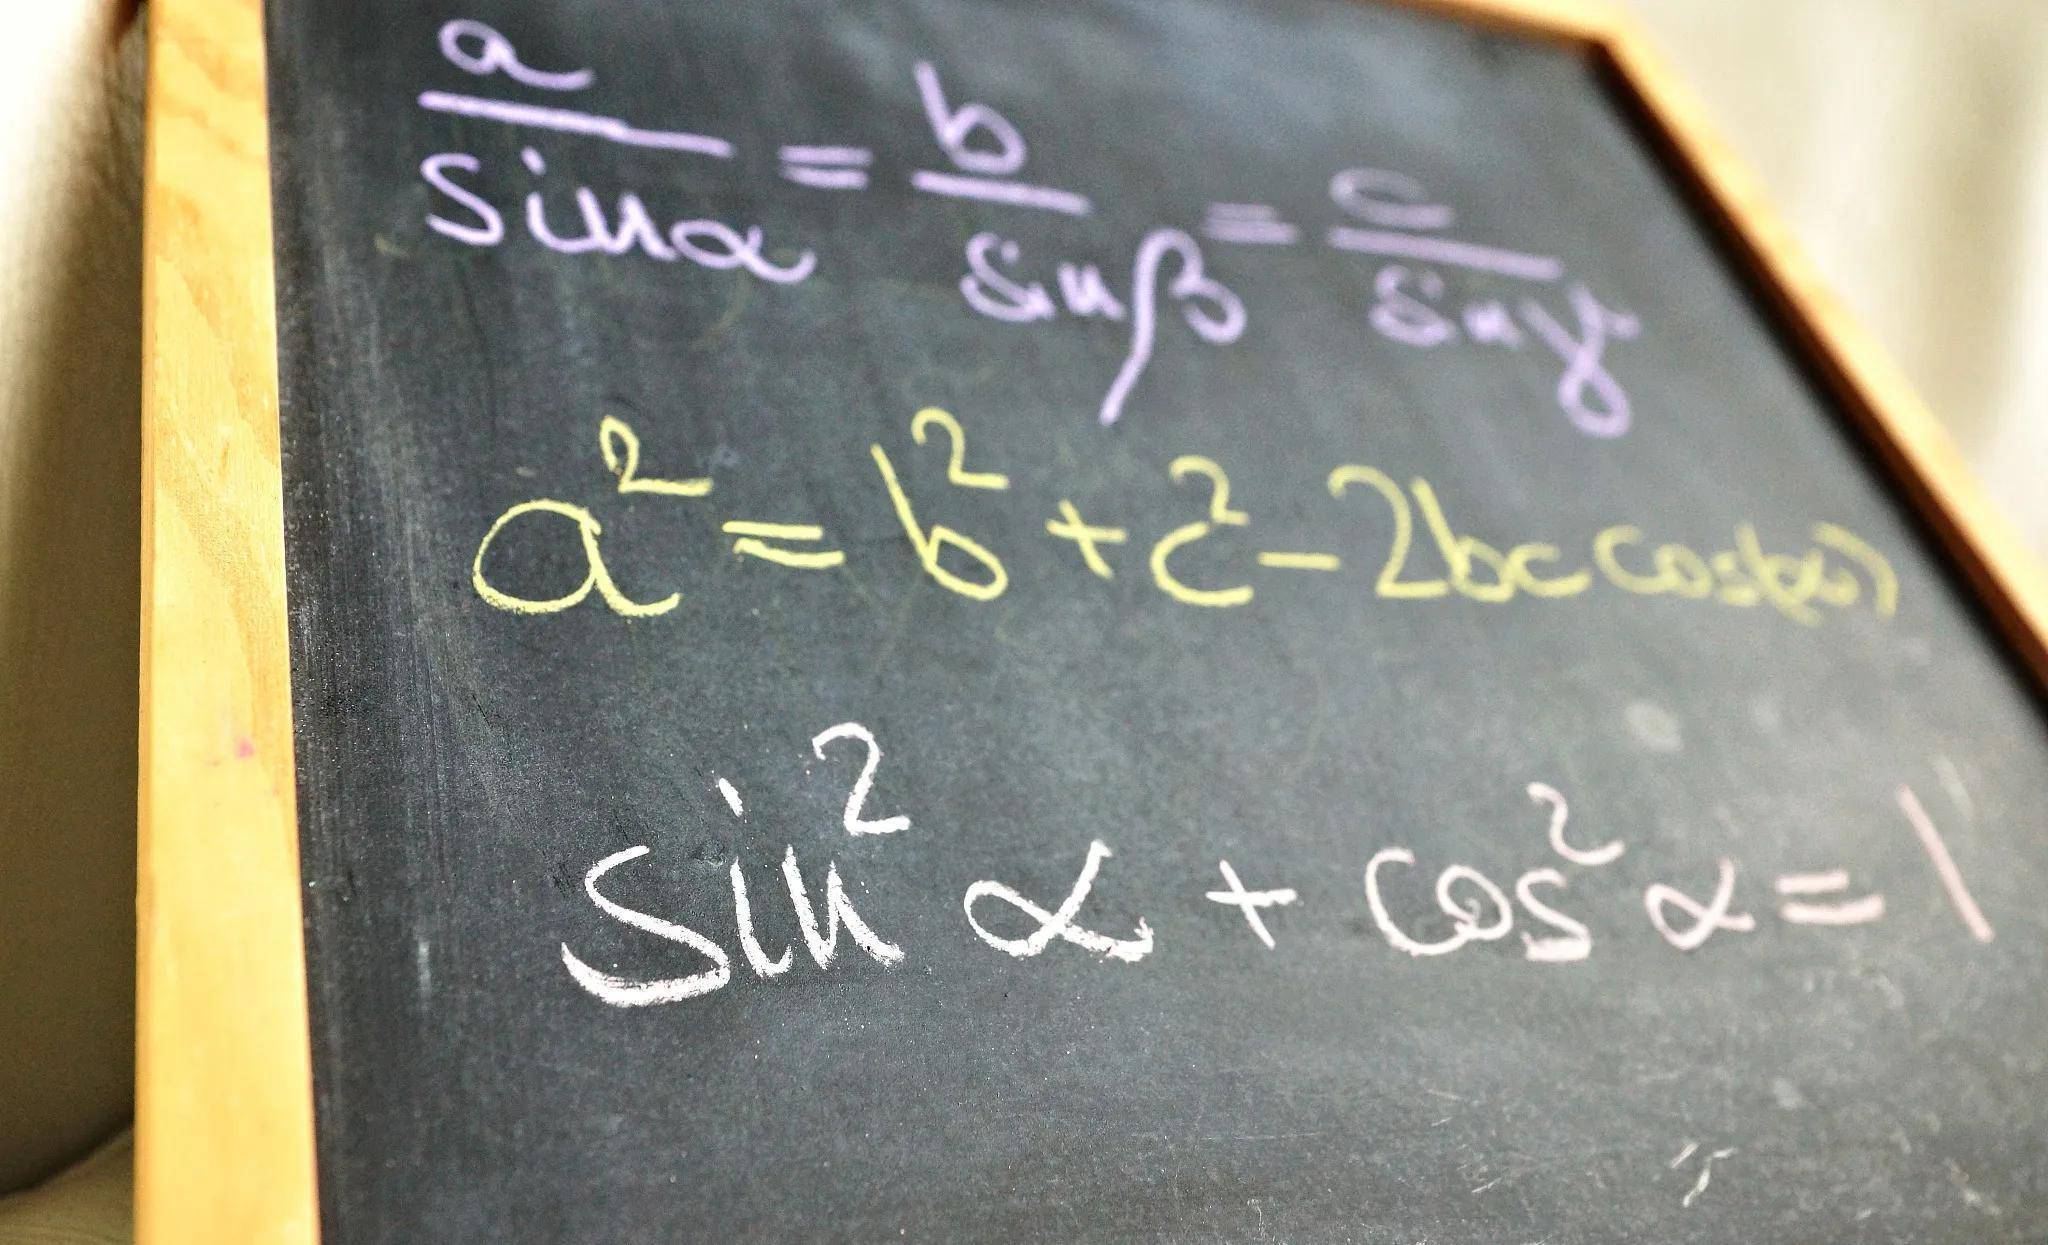 a/sinα = b/sinβ = c/sinγ
a² = b² + c² - 2bc cos(α)
sin² α + cos² α = 1